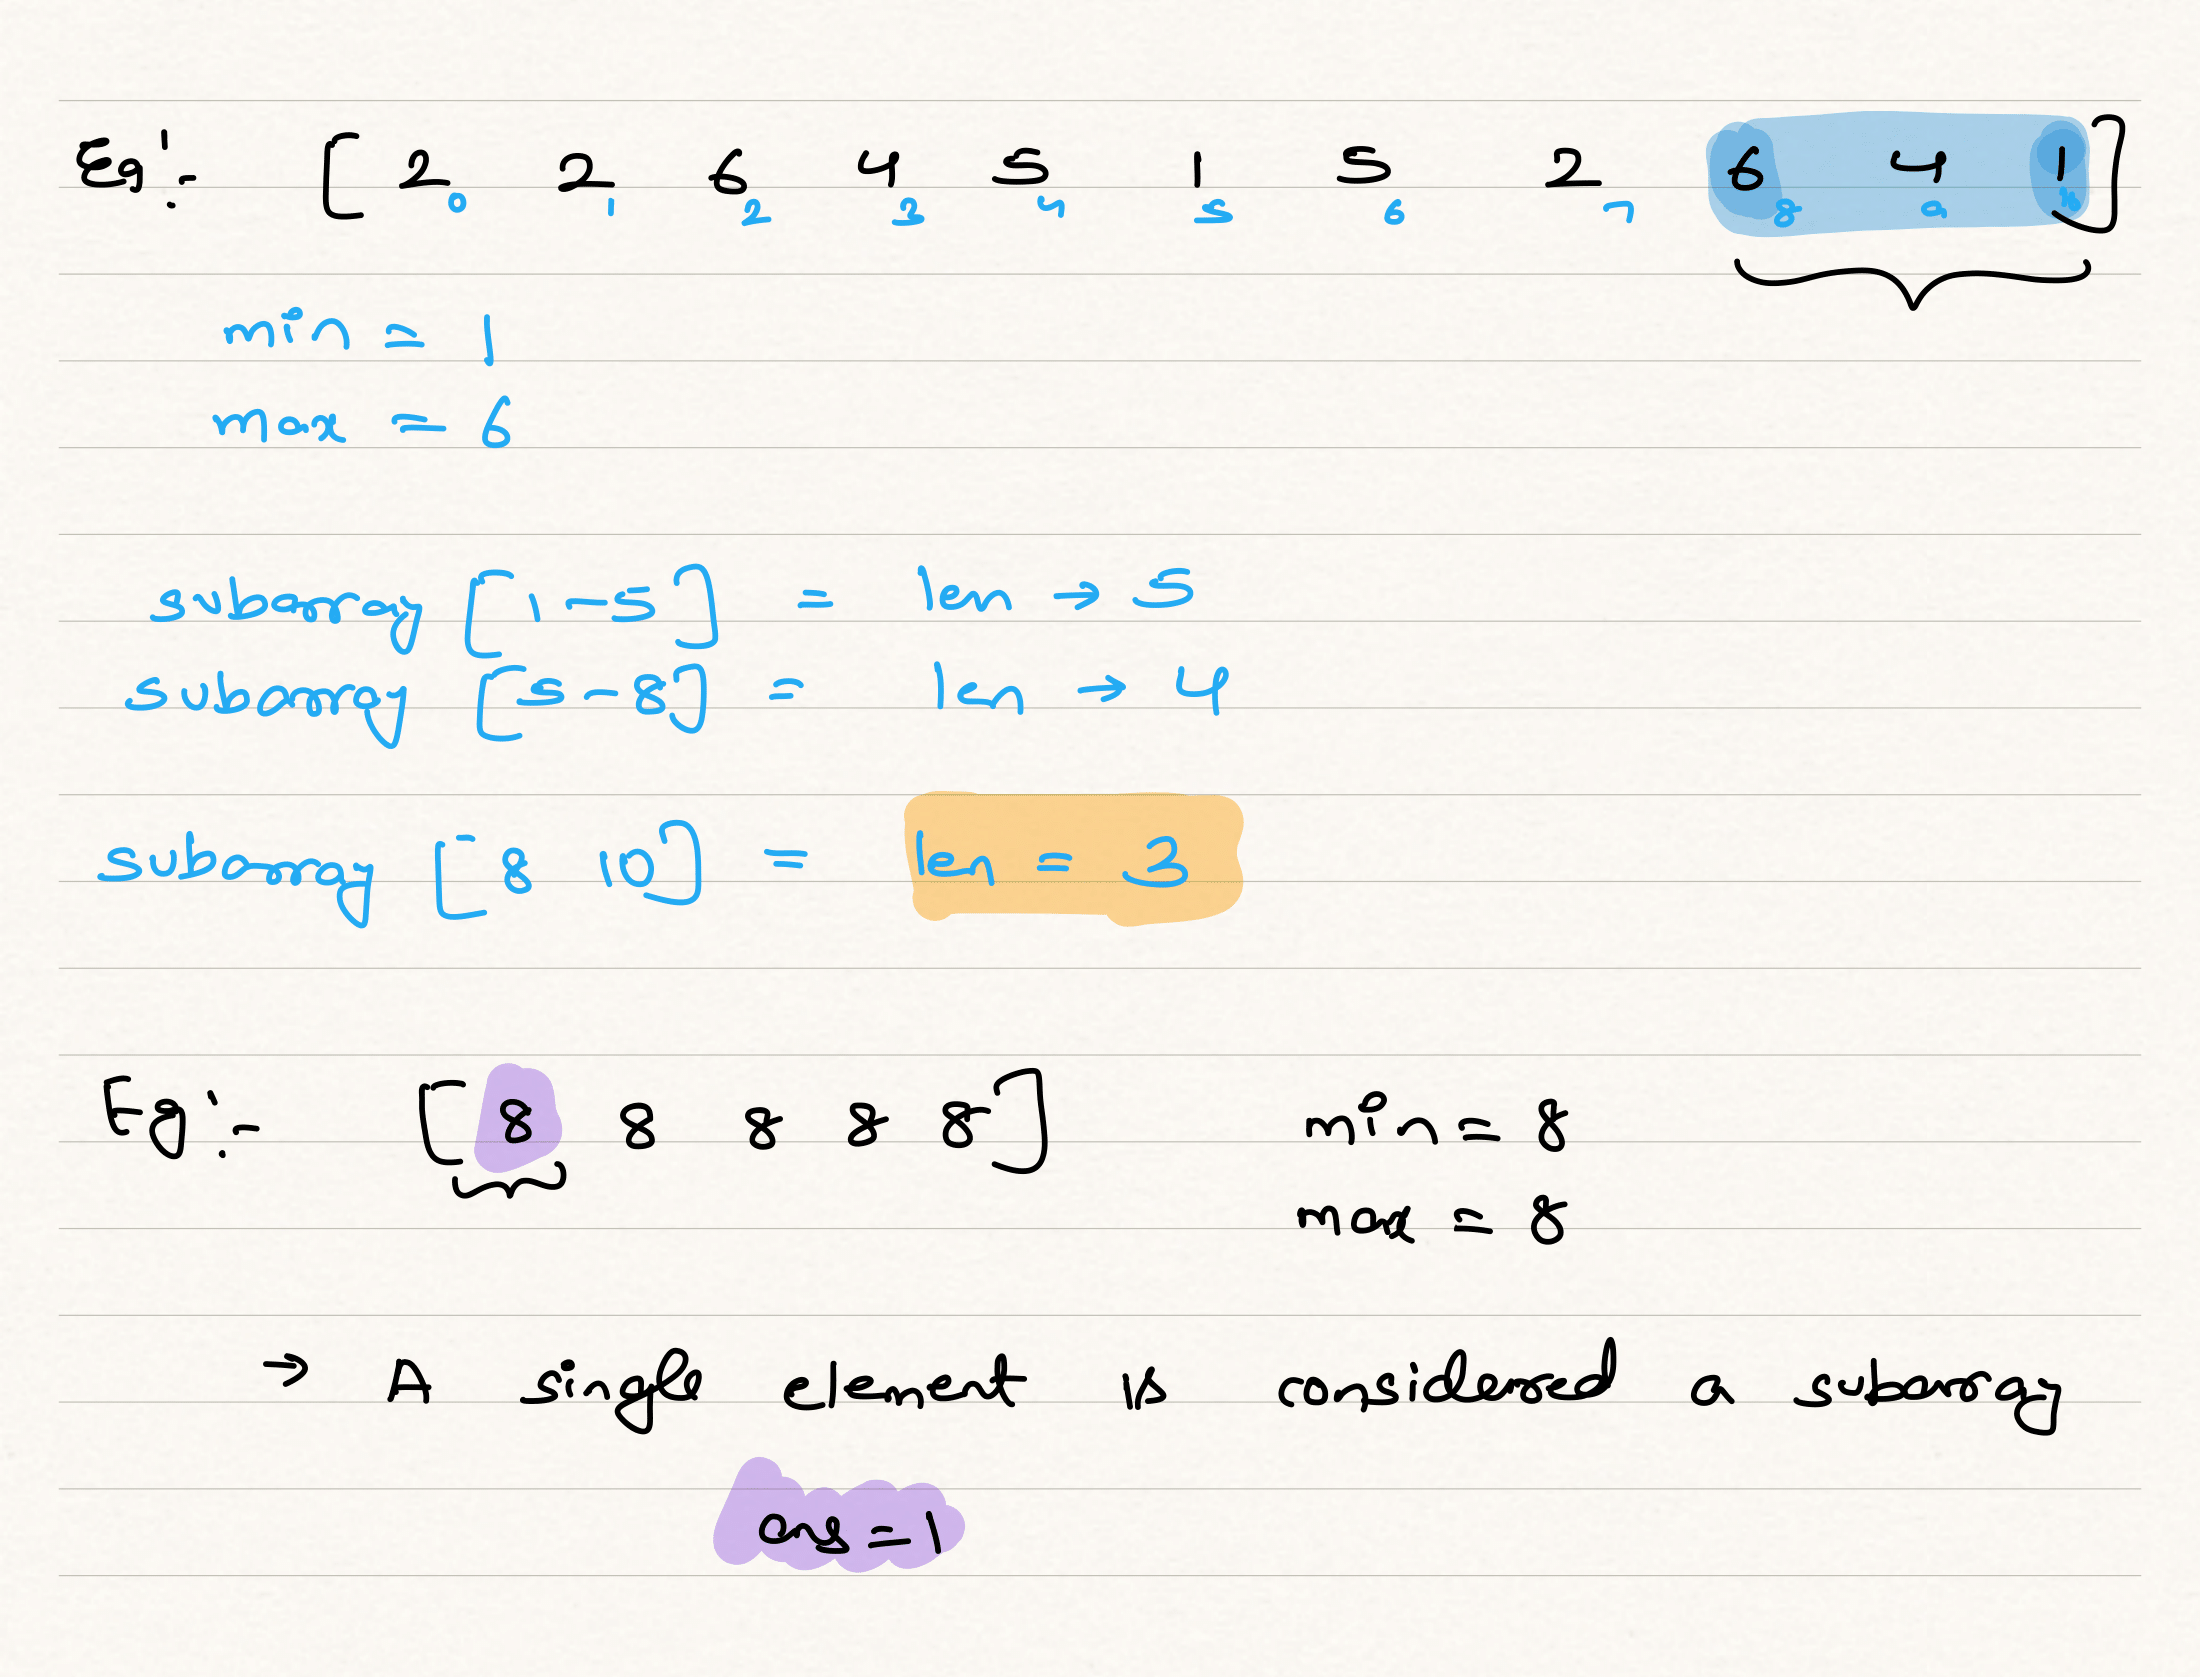 Eg:- [ 2 2 6 4 5 1 5 2 6 4 1 ]
0 1 2 3 4 5 6 7 8 9 10
min = 1
max = 6
subarray [1-5] = len → 5
subarray [5-8] = len → 4
subarray [8 10] = len = 3
Eg:- [ 8 8 8 8 8 ] min = 8
max = 8
→ A single element is considered a subarray
ans = 1